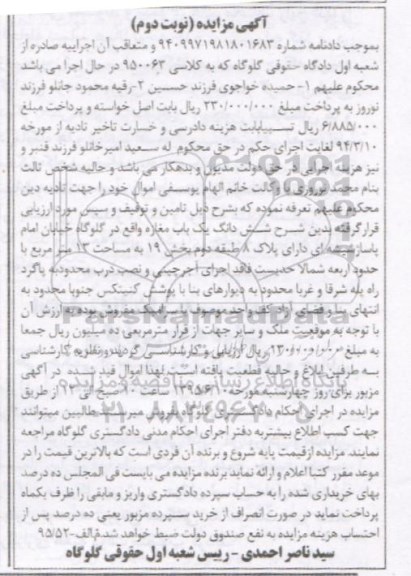 آگهی مزایده (نوبت دوم)
بموجب دادنامه شماره ۹۴۰۹۹۷۱۹۸۱۸۰۱۶۸۳ و متعاقب آن اجراییه صادره از
شعبه اول دادگاه حقوقی گلوگاه که به کلاسی ۹۵۰۰۶۳ در حال اجرا می باشد
محکوم علیهم ۱- حمیده خواجوی فرزند حسین ۲-رقیه محمود جانلو فرزند
نوروز به پرداخت مبلغ ۲۳۰/۰۰۰/۰۰۰ ریال بابت اصل خواسته و پرداخت مبلغ
۶/۸۸۵/۰۰۰ ریال نسبت هزینه دادرسی و خسارت تاخیر تادیه از مورخه
۹۴/۳/۱۰ لغایت اجرای حکم در حق محکوم له سعید امیرخانلو فرزند قنبر و
نیز هزینه اجرایی در حق دولت مدیون و بدهکار می باشد و حالیه شخص ثالث
بنام محمد نوروزی با وکالت خانم الهام یوسفی اموال خود را جهت تادیه دین
محکوم علیهم تعرفه نموده که بشرح ذیل تامین و توقیف و سپس مورد ارزیابی
قرار گرفته بدین شرح شش دانگ یک باب مغازه واقع در گلوگاه خیابان امام
پاساژ دارای پلاک ۸ طبقه دوم بخش ۱۹ به مساحت ۱۳ متر مربع با
حدود اربعه شمالا حدیست فاقد اجرای آجرچینی و نصب درب محدود به پاگرد
راه پله شرقا و غربا محدود به دیوارهای بنا با پوشش کنیتکس جنوبا محدود به
انتهای بنا و فضای آزاد کف سرامیک مفروش بوده که ارزش آن
با توجه به موقعیت ملک و سایر جهات از قرار مترمربعی ده میلیون ریال جمعا
به مبلغ ۱۳۰/۰۰۰/۰۰۰ ریال ارزیابی و کارشناسی گردید و نظریه کارشناسی
به طرفین ابلاغ و حالیه قطعیت یافته است لهذا اموال قید شده در آگهی
مزبور برای روز چهارشنبه مورخه ۱۳۹۵/۶/۱۰ ساعت ۱۰ صبح الی ۱۲ از طریق
مزایده در اجرای احکام دادگستری گلوگاه بفروش میرسد طالبین میتوانند
جهت کسب اطلاع بیشتر به دفتر اجرای احکام مدنی دادگستری گلوگاه مراجعه
نمایند. مزایده از قیمت پایه شروع و برنده آن فردی است که بالاترین قیمت را در
موعد مقرر کتبا اعلام و ارائه نماید برنده مزایده می بایست فی المجلس ده درصد
بهای خریداری شده را به حساب سپرده دادگستری واریز و مابقی را ظرف یکماه
پرداخت نماید در صورت انصراف از خرید سپرده مزبور یعنی ده درصد پس از
احتساب هزینه مزایده به نفع صندوق دولت ضبط خواهد شد.م/الف-۹۵/۵۲
سید ناصر احمدی - رییس شعبه اول حقوقی گلوگاه
پایگاه اطلاع رسانی مناقصه و مزایده